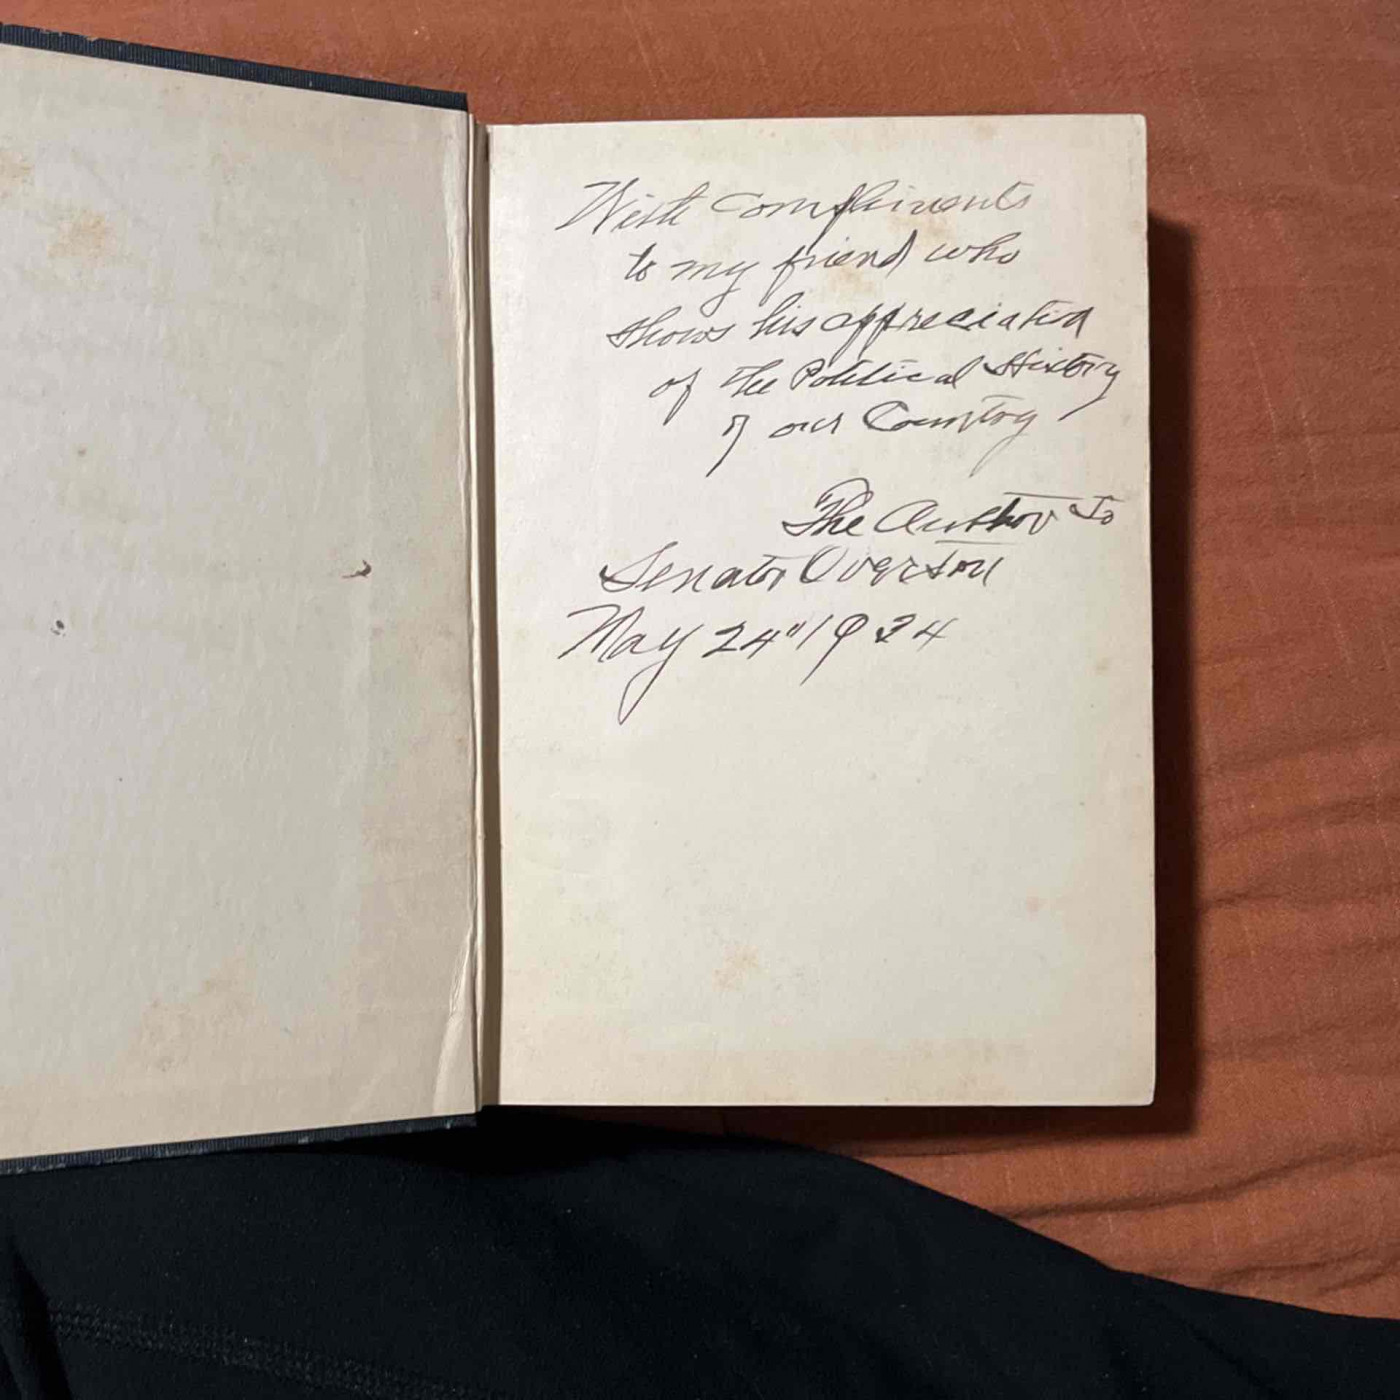 With compliments
to my friend who
shows his appreciation
of the Political History
of our Country
The Author To
Senator Overton
May 24" 1934